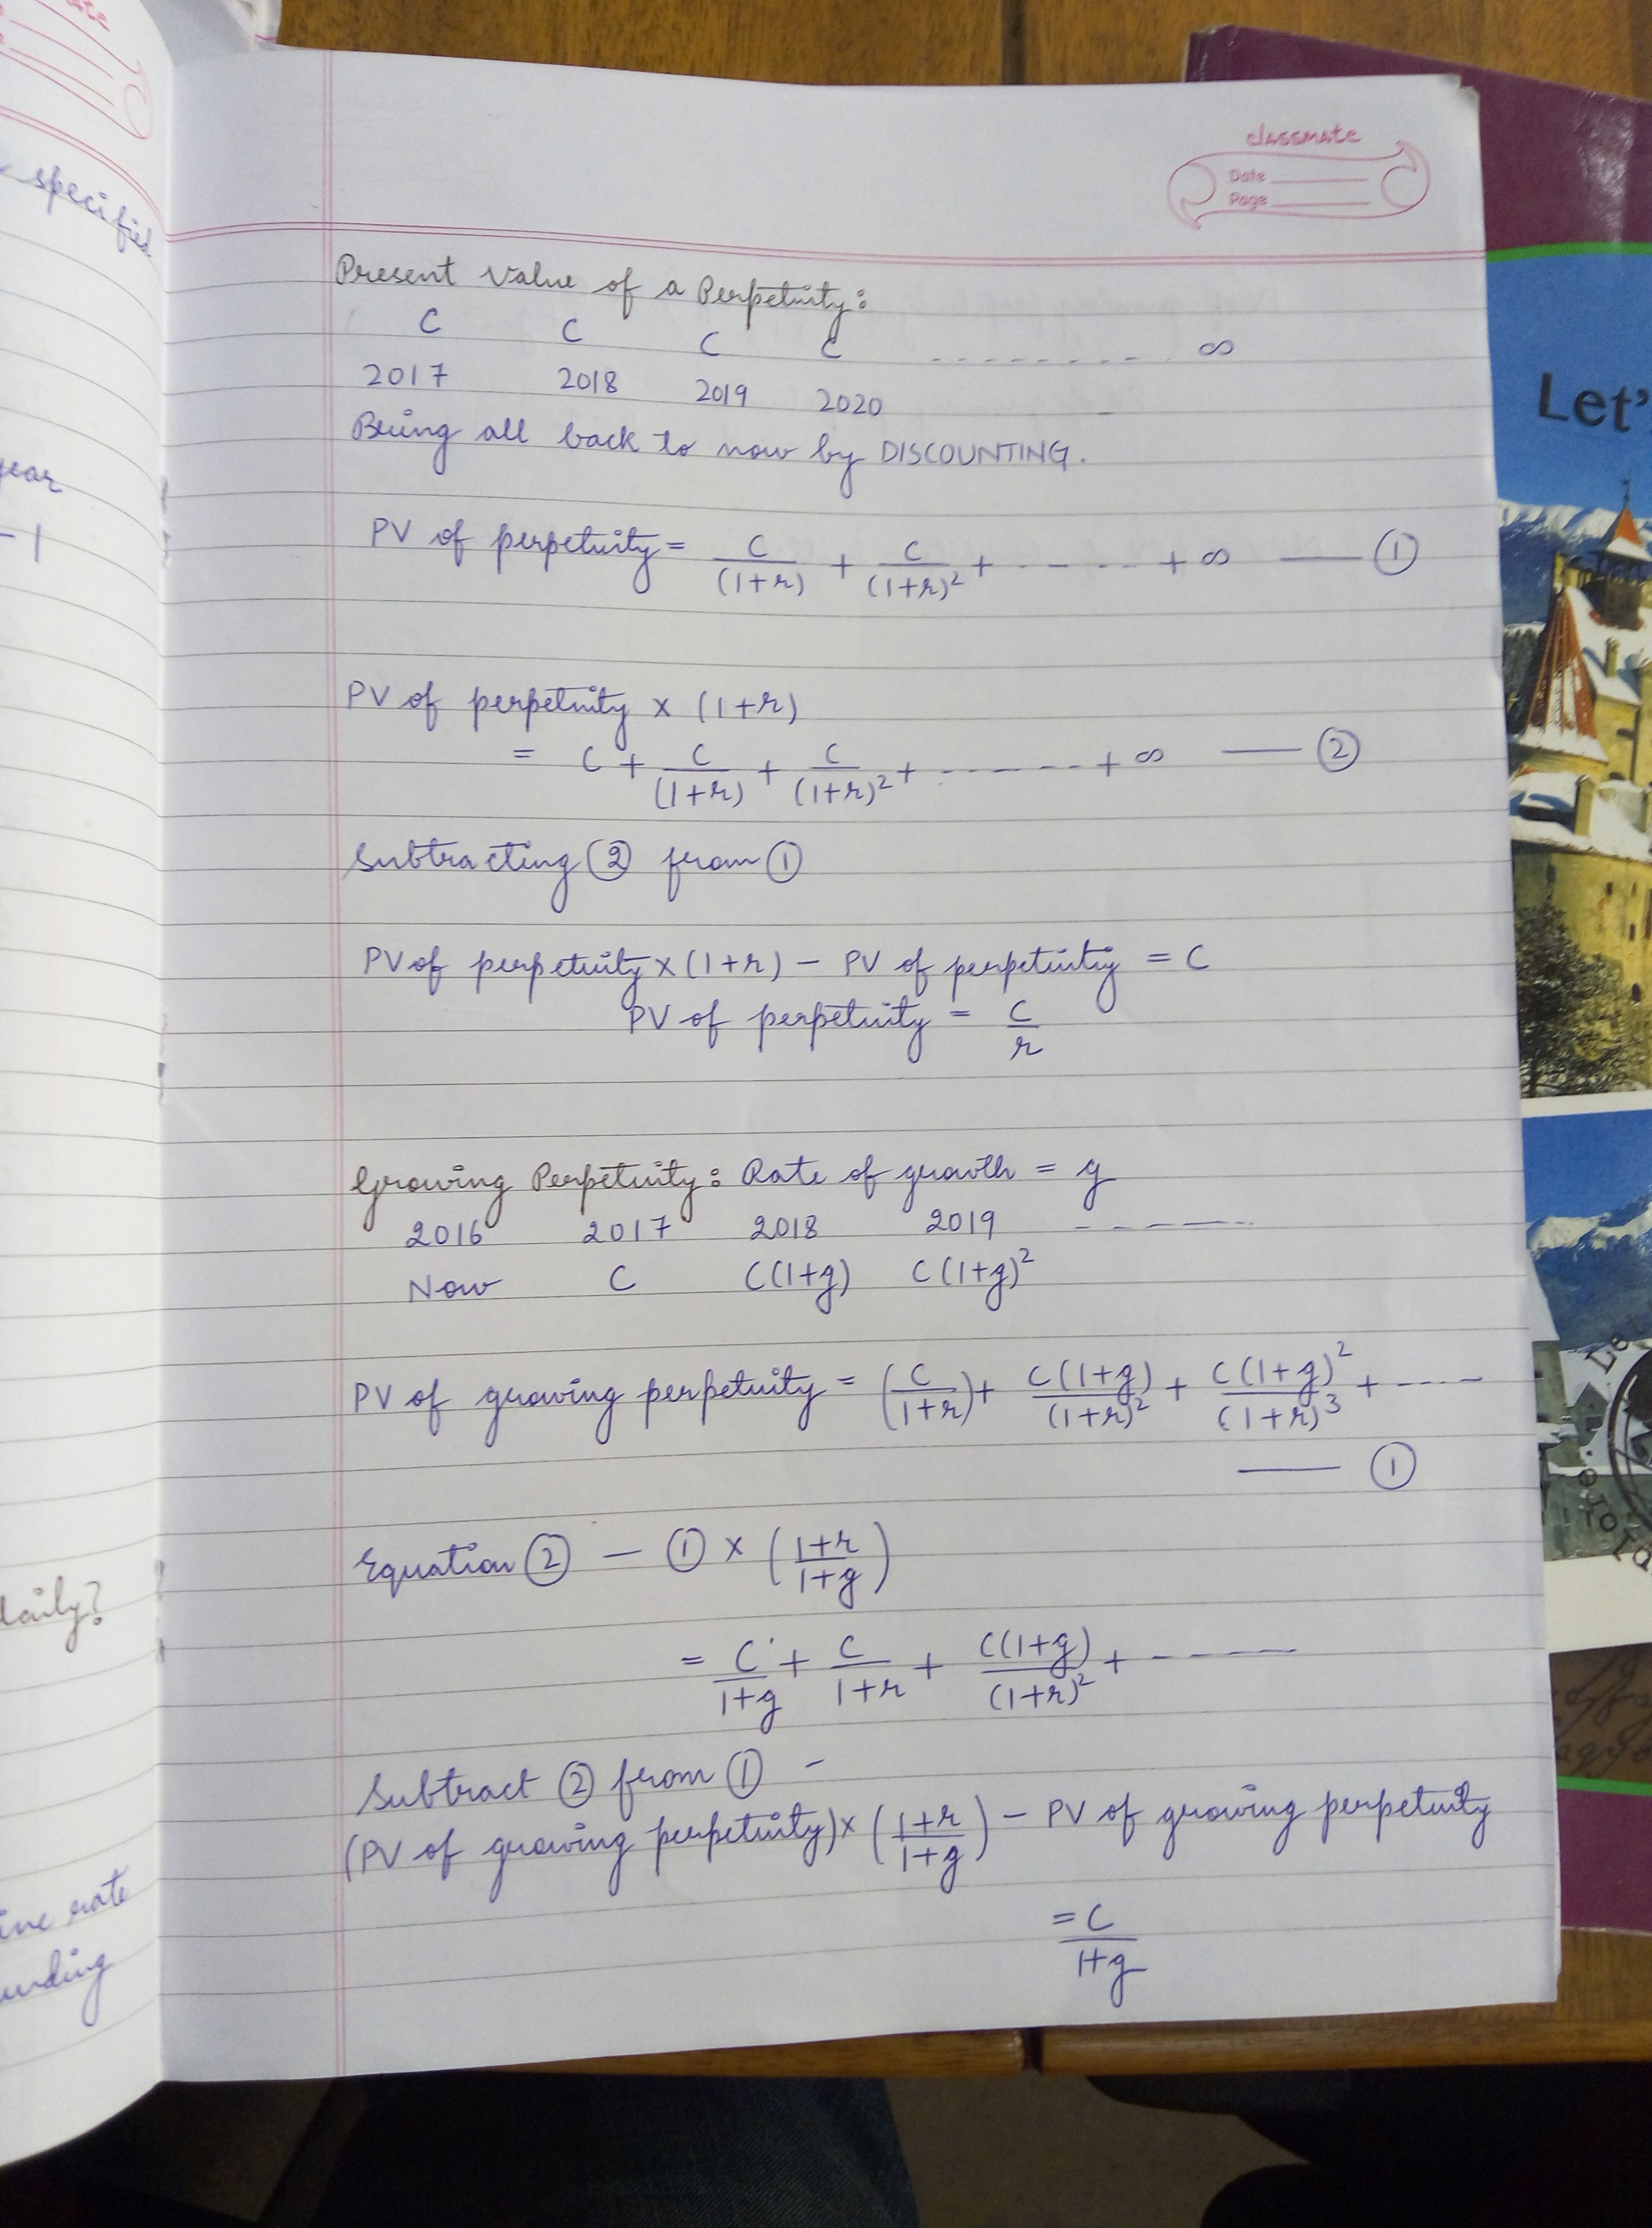 specified
year
-1
daily?
rate
classmate
Date
Page
Present Value of a Perpetuity:
C C C C -------- ∞
2017 2018 2019 2020
Bring all back to now by DISCOUNTING.
PV of perpetuity = C/(1+r) + C/(1+r)² + ----- + ∞ —— ①
PV of perpetuity × (1+r)
= C + C/(1+r) + C/(1+r)² + ------- + ∞ —— ②
Subtracting ② from ①
PV of perpetuity × (1+r) - PV of perpetuity = C
PV of perpetuity = C/r
Growing Perpetuity: Rate of growth = g
2016 2017 2018 2019 ------
Now C C(1+g) C(1+g)²
PV of growing perpetuity = (C/1+r) + C(1+g)/(1+r)² + C(1+g)²/(1+r)³ + ----
—— ①
Equation ② — ① × (1+r/1+g)
= C/1+g + C/1+r + C(1+g)/(1+r)² + ------
Subtract ② from ① -
(PV of growing perpetuity) × (1+r/1+g) - PV of growing perpetuity
= C/1+g
Let'